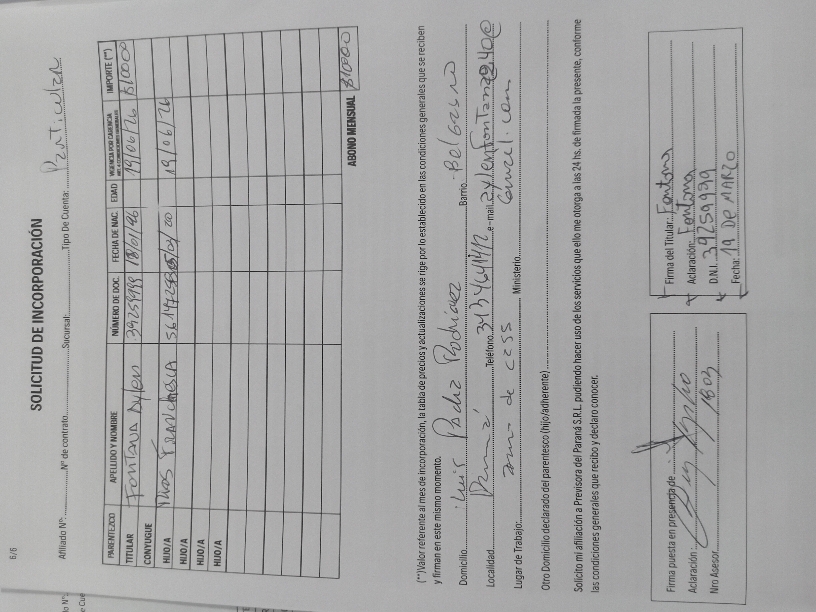 6/6
SOLICITUD DE INCORPORACIÓN
Afiliado Nº: Nº de contrato Sucursal: Tipo De Cuenta: Particular
PARENTEZCO APELLIDO Y NOMBRE NÚMERO DE DOC. FECHA DE NAC. EDAD VIGENCIA POR CARENCIA IMPORTE (**)
TITULAR Fontana 39259999 18/01/96 19/06/26 $10000
CONYUGUE
HIJO/A Franchesca 19/06/26
HIJO/A
HIJO/A
HIJO/A
ABONO MENSUAL $10000
(**)Valor referente al mes de incorporación, la tabla de precios y actualizaciones se rige por lo establecido en las condiciones generales que se reciben
y firman en este mismo momento.
Domicilio: Luis Rodriguez Barrio: Belgrano
Localidad: Paraná Teléfono: e-mail:
Lugar de Trabajo: de casa Ministerio: Gmail.com
Otro Domicilio declarado del parentesco (hijo/adherente)
Solicito mi afiliación a Previsora del Paraná S.R.L. pudiendo hacer uso de los servicios que ello me otorga a las 24 hs. de firmada la presente, conforme
las condiciones generales que recibo y declaro conocer.
Firma puesta en presencia de
Aclaración:
Nro Asesor: 1803
Firma del Titular: Fontana
Aclaración: Fontana
D.N.I.: 39259999
Fecha: 19 DE MARZO